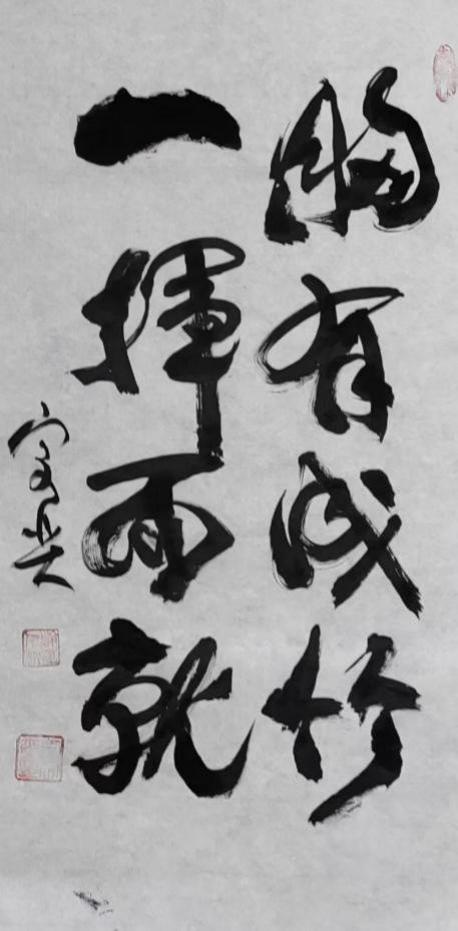 胸有成竹
一揮而就